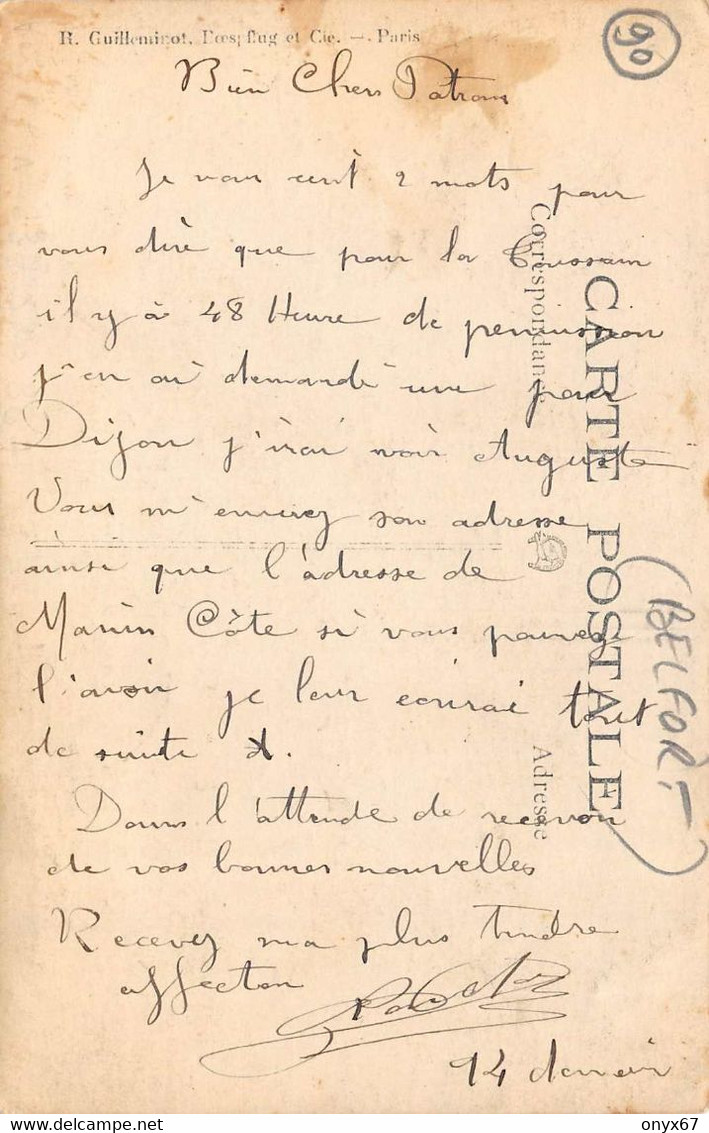 R. Guilleminot, Bœspflug et Cie. — Paris
90
Bien Chers Patrons
Je vous ecrit 2 mots pour
vous dire que pour la Toussain
il y à 48 Heure de permission
j'en ai demandé une pour
Dijon j'irai voir Auguste
Vous m'enverez son adresse
ainsi que l'adresse de
Marin Côte si vous pouvez
l'avoir je leur écrirai tout
de suite
Dans l'attende de recevoir
de vos bonnes nouvelles
Recevez ma plus tendre
affection
14
Correspondance
CARTE POSTALE
Adresse
(BELFORT)
onyx67